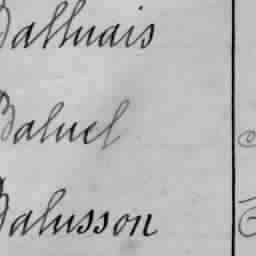 Balluais
Baluel
Balusson